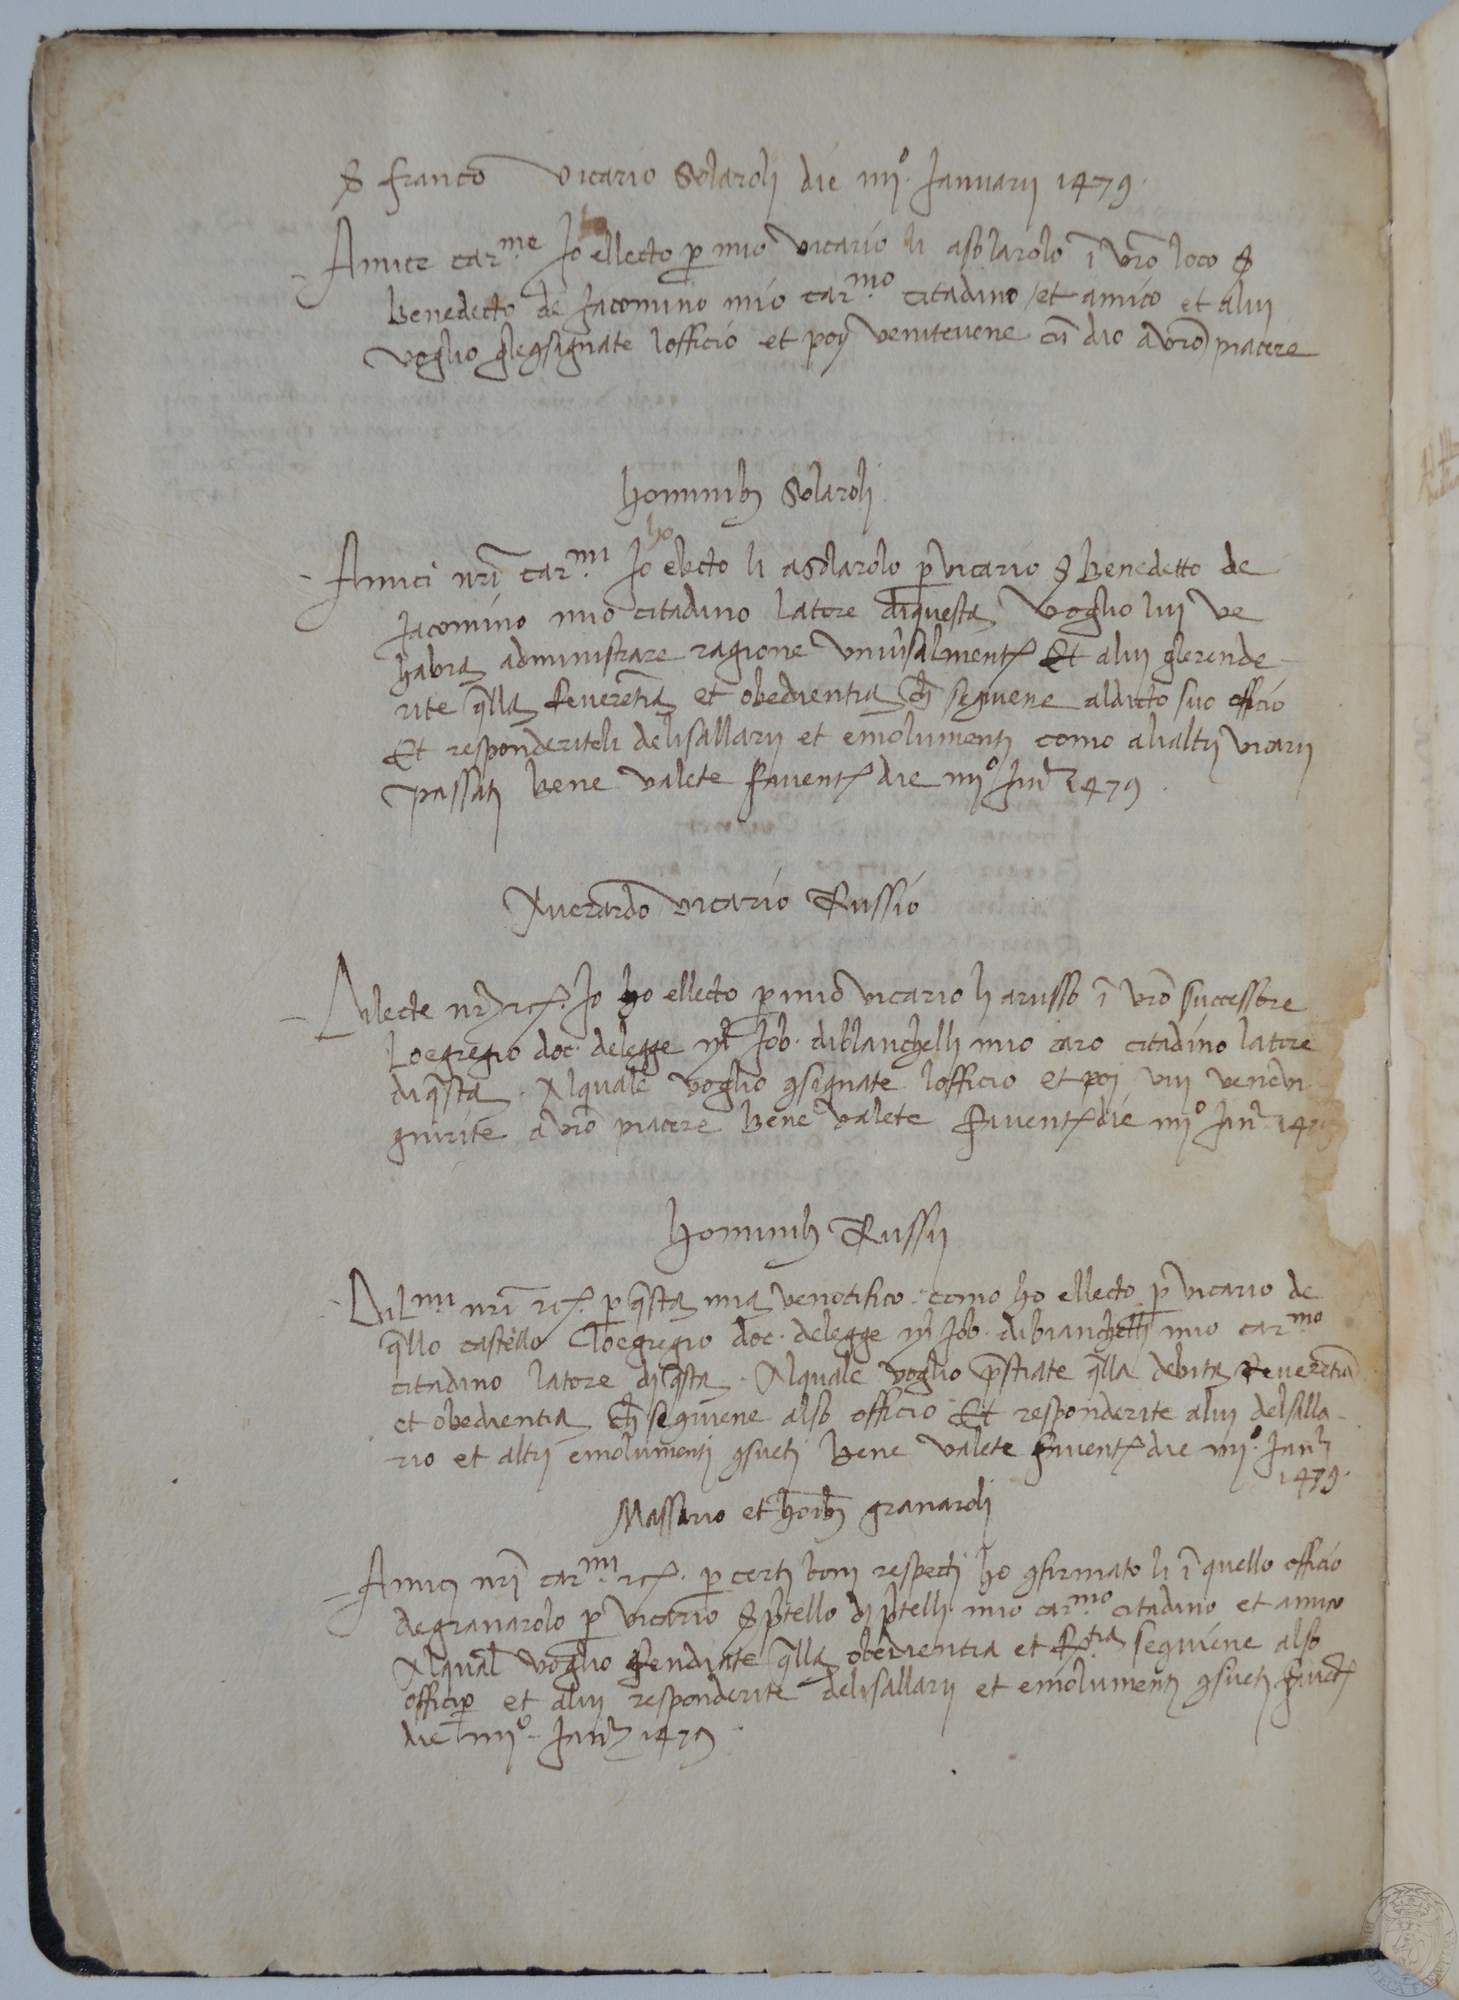 S franco vicario Solaroli die iiij° Januarij 1479.
Amice car.me Jo ho ellecto p mio vicario li asolarolo ĩ vr̃o loco S
benedecto de Jacomino mio car.mo citadino et amico et alui
voglio gle 9signate lofficio et poy venitevene cũ dio a vr̃o piacere
hominib; Solaroli
Amici nr̃i car.mi Jo ho electo li asolarolo p vicario S benedetto de
Jacomino mio citadino latore diquesta voglio lui ve
habia administrare ragione uniṽsalmente Et alui glerende
rite q̃lla reverẽtia et obedientia ch̃ seguiene aldicto suo officio
Et responderiteli delisallarij et emolumenti como alialtri vicarij
passati bene valete favent. die iiij° Jan 1479.
Averardo vicario Russio
Dilecte nr̃ rc̃. Jo ho ellecto p mio vicario li arusso ĩ vr̃o successore
Loegregio doc. delegge m̃ Job. diblanchelli mio caro citadino latore
diq̃sta. Alquale voglio 9signate lofficio et poi vui venevi
gnirite a vr̃o piacere bene valete favent. die iiij° Jan. 147
hominib; Russij
Dil.mi nr̃i rc̃. p q̃sta mia venotifico como ho ellecto p vicario de
q̃llo castello loegregio doc. delegge m̃ Job. dibianchelli mio car.mo
citadino latore di q̃sta. Alquale voglio p̃stiate q̃lla debita reverẽtia
et obedientia ch̃ seguiene also officio Et responderite alui delsalla
rio et altri emolumenti 9sueti bene valete favent. die iiij°. Jan
1479.
Massario et hoĩb; granaroli
Amici nr̃i car.mi rc̃. p certi boni respecti ho 9firmato li ĩ quello officio
degranarolo p vicario S di mio car.mo citadino et amico
Alqual voglio rendiate q̃lla obedientia et R.tia seguiene also
officio et alui responderite delisallarij et emolumenti 9sueti favet.
die iiij°. Jan 1479.